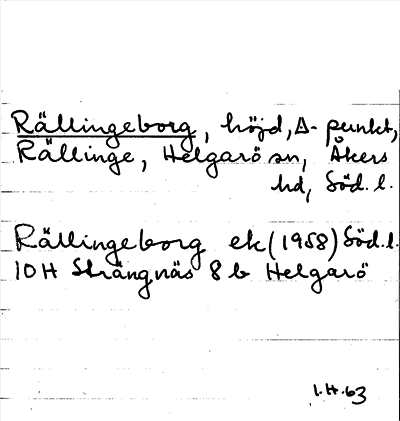 Rällingeborg, höjd, Δ-punkt,
Rällinge, Helgarö sn, Åkers
hd, Söd. l.
Rällingeborg ek (1958) Söd. l.
10H Strängnäs 8b Helgarö
I.H. 63